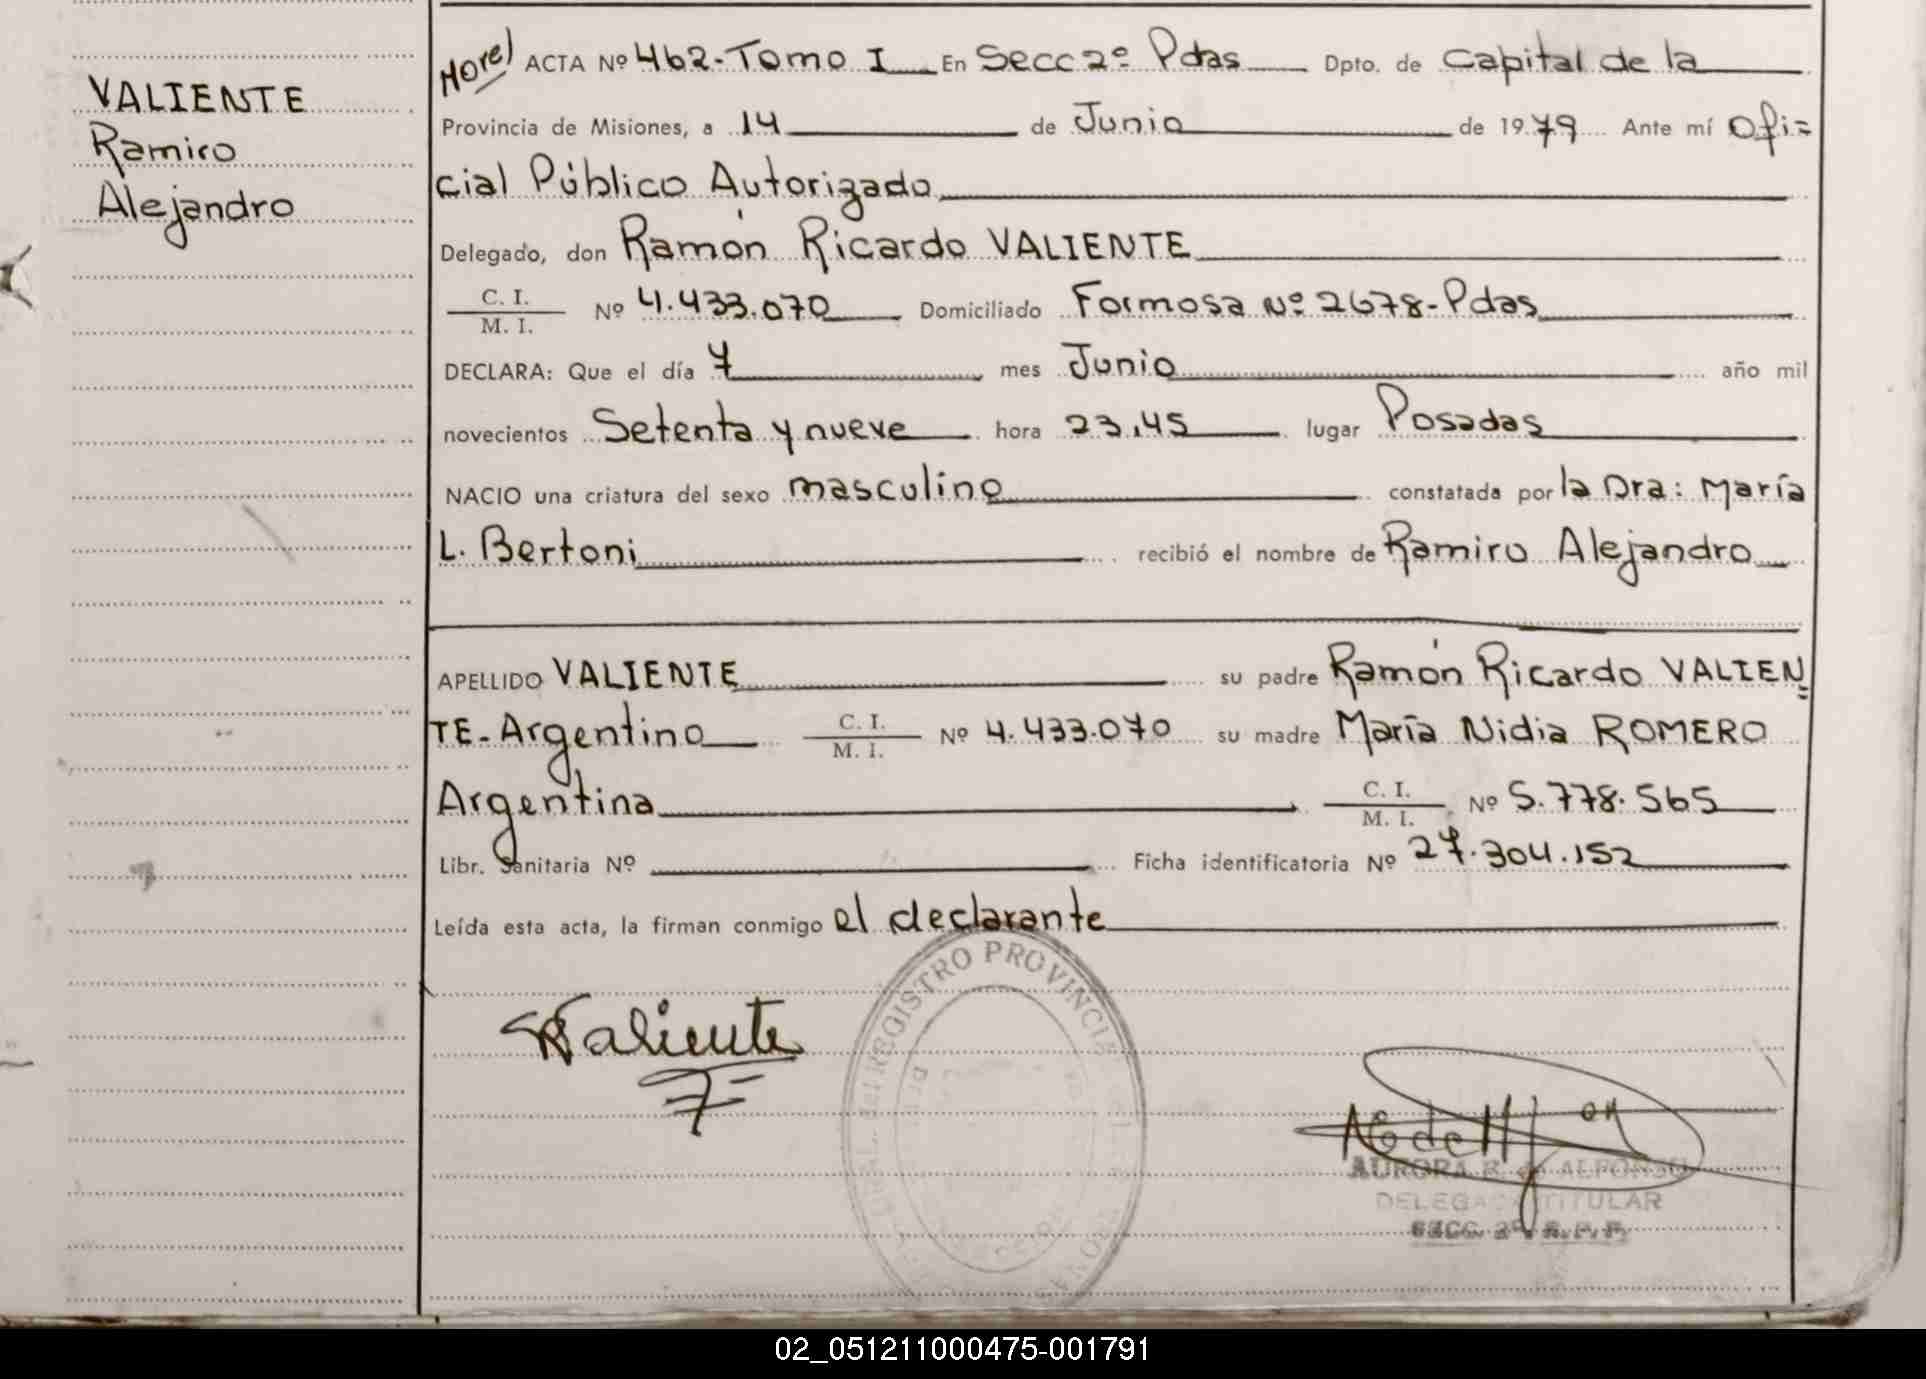 VALIENTE
Ramiro
Alejandro
ACTA Nº 462-Tomo I En Secc 2º Pdas Dpto. de Capital de la
Provincia de Misiones, a 14 de Junio de 1979 Ante mí Ofi=
cial Público Autorizado
Delegado, don Ramón Ricardo VALIENTE
C. I.
M. I. Nº 4.433.070 Domiciliado Formosa Nº 2678-Pdas
DECLARA: Que el día 7 mes Junio año mil
novecientos Setenta y nueve hora 23,45 lugar Posadas
NACIO una criatura del sexo masculino constatada por la Dra: María
L. Bertoni recibió el nombre de Ramiro Alejandro
APELLIDO VALIENTE su padre Ramón Ricardo VALIEN=
TE-Argentino C. I. M. I. Nº 4.433.070 su madre María Nidia ROMERO
Argentina C. I. M. I. Nº 5.778.565
Libr. Sanitaria Nº Ficha identificatoria Nº 27.304.152
Leída esta acta, la firman conmigo el declarante
Valiente
REGISTRO PROVINCIAL
AURORA R. de ALFONSO
DELEGADA TITULAR
SECC. 2ª R.P.P.
02_051211000475-001791